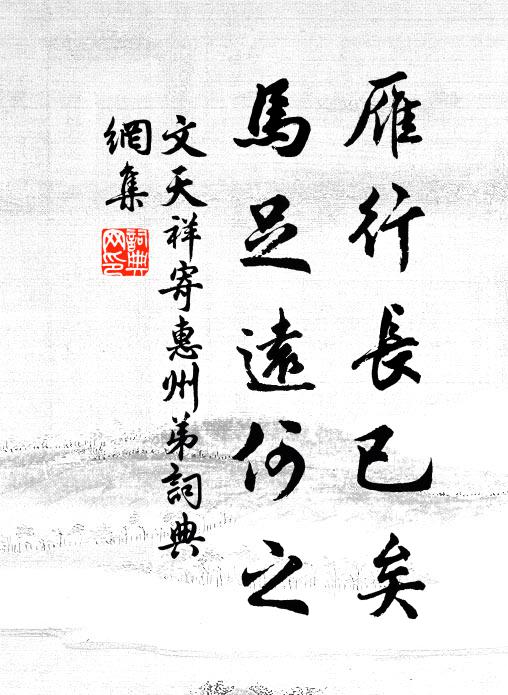 雁行長已矣
馬足遠何之
文天祥寄惠州弟詞典
網集
詞典
網印